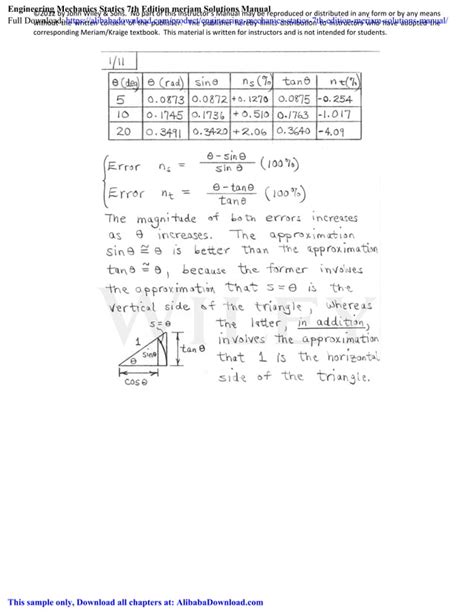 Engineering Mechanics Statics 7th Edition meriam Solutions Manual
©2011 by John Wiley & Sons. No part of this Instructor's Manual may be reproduced or distributed in any form or by any means
Full Download: https://alibabadownload.com/product/engineering-mechanics-statics-7th-edition-meriam-solutions-manual/
without the written consent of the publisher. The publisher hereby limits distribution to instructors who have adopted the
corresponding Meriam/Kraige textbook. This material is written for instructors and is not intended for students.
1/11
θ (deg) θ (rad) sinθ ns (%) tanθ nt (%)
5 0.0873 0.0872 +0.1270 0.0875 -0.254
10 0.1745 0.1736 +0.510 0.1763 -1.017
20 0.3491 0.3420 +2.06 0.3640 -4.09
Error ns = θ-sinθ / sinθ (100%)
Error nt = θ-tanθ / tanθ (100%)
The magnitude of both errors increases
as θ increases. The approximation
sinθ ≅ θ is better than the approximation
tanθ ≅ θ, because the former involves
the approximation that s=θ is the
vertical side of the triangle, whereas
the latter, in addition,
involves the approximation
that 1 is the horizontal
side of the triangle.
s=θ
1
sinθ
tanθ
θ
cosθ
WILEY
This sample only, Download all chapters at: AlibabaDownload.com